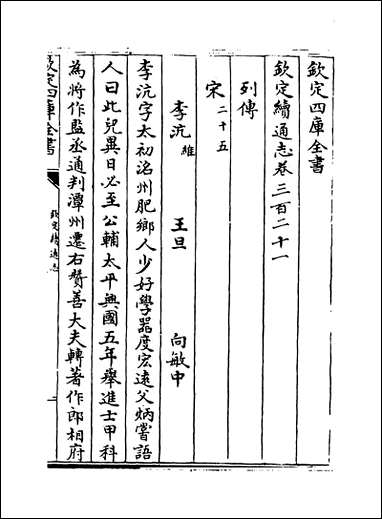 欽定四庫全書
欽定續通志卷三百二十一
列傳
宋二十五
李沆維 王旦 向敏中
李沆字太初洺州肥鄉人少好學器度宏遠父炳嘗語
人曰此兒異日必至公輔太平興國五年舉進士甲科
為將作監丞通判潭州遷右贊善大夫轉著作郎相府
欽定四庫全書
欽定續通志
一